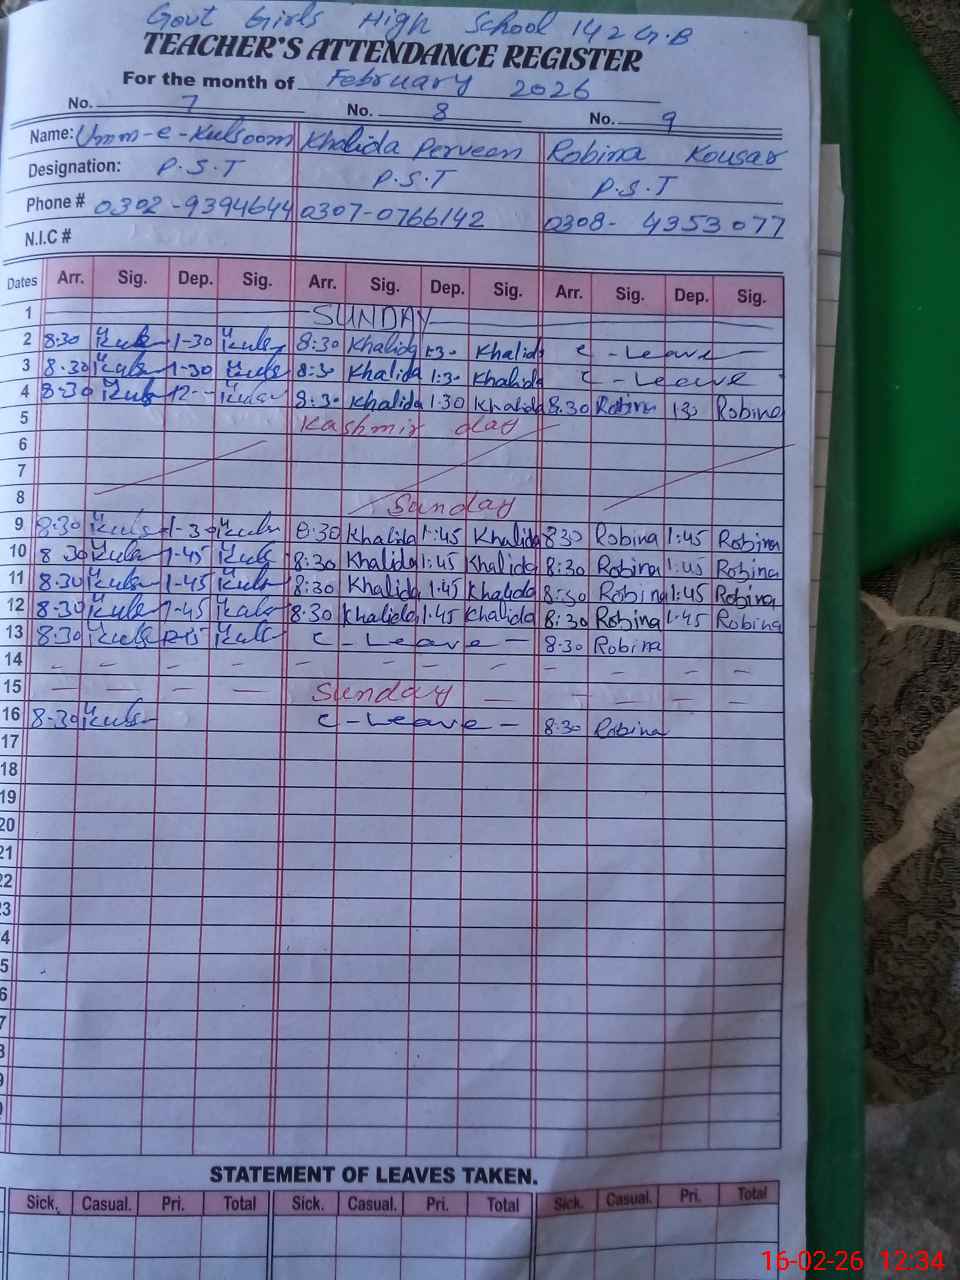 Govt Girls High School 142 G.B
TEACHER'S ATTENDANCE REGISTER
For the month of February 2026
No. 7 No. 8 No. 9
Name: Umm-e-Kulsoom Khalida Perveen Robina Kousar
Designation: P.S.T P.S.T P.S.T
Phone # 0302-9394644 0307-0766142 0308-4353077
N.I.C #
Dates Arr. Sig. Dep. Sig. Arr. Sig. Dep. Sig. Arr. Sig. Dep. Sig.
1 SUNDAY
2 8:30 Kuls 1-30 Kuls 8:30 Khalida 1:30 Khalida C-Leave
3 8.30 Kuls 1-30 Kuls 8:30 Khalida 1:30 Khalida C-Leave
4 8-30 Kuls 12-- Kuls 8:30 Khalida 1:30 Khalida 8:30 Robina 130 Robina
5 Kashmir day
6
7
8 Sunday
9 8:30 Kuls 1-30 Kuls 8:30 Khalida 1:45 Khalida 830 Robina 1:45 Robina
10 8 30 Kuls 1-45 Kuls 8:30 Khalida 1:45 Khalida 8:30 Robina 1:45 Robina
11 8.30 Kuls 1-45 Kuls 8:30 Khalida 1:45 Khalida 8:30 Robina 1:45 Robina
12 8-30 Kuls 1-45 Kuls 8:30 Khalida 1:45 Khalida 8:30 Robina 1:45 Robina
13 8.30 Kuls Kuls C-Leave - 8:30 Robina
14 - - - - - - - - - - - -
15 - - - - Sunday - - - - -
16 8-30 Kuls C-Leave - 8:30 Robina
17
18
19
20
21
22
23
4
5
6
7
STATEMENT OF LEAVES TAKEN.
Sick. Casual. Pri. Total Sick. Casual. Pri. Total Sick. Casual. Pri. Total
16-02-26 12:34